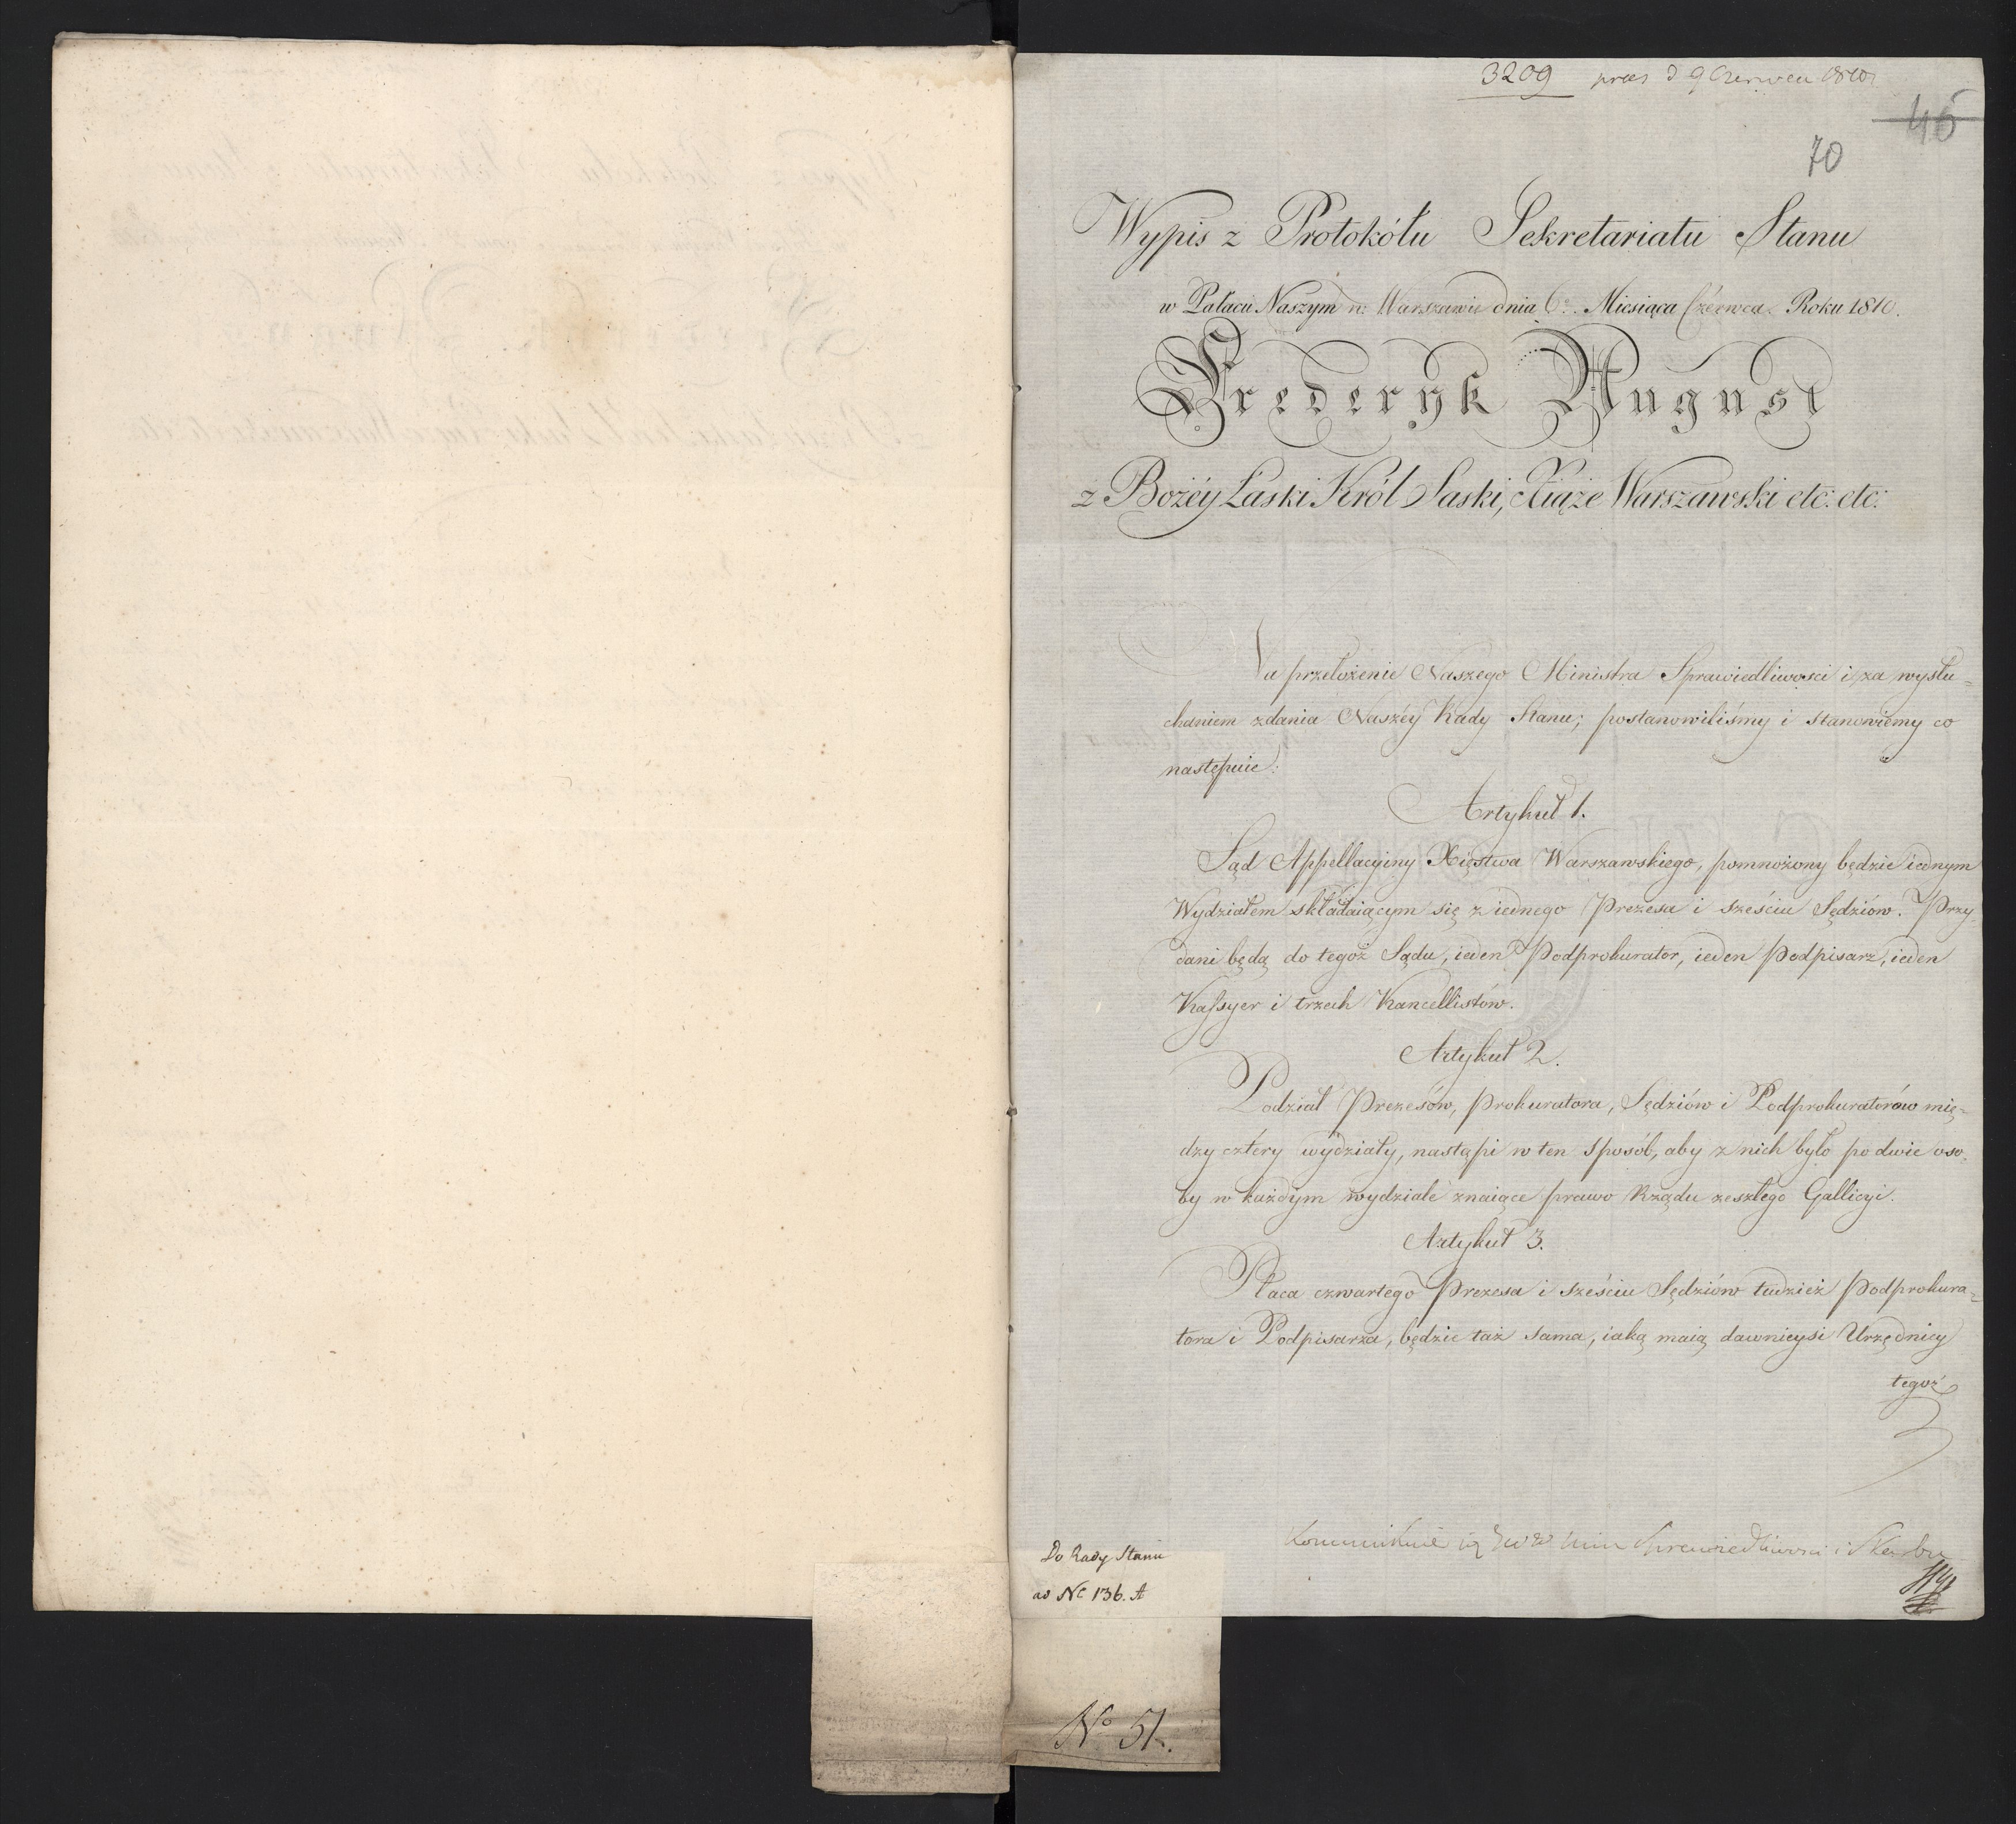 3209 praes d 9 Czerwca 1810
45
70
Wypis z Protokółu Sekretariatu Stanu
w Pałacu Naszym w Warszawie dnia 6º Miesiąca Czerwca Roku 1810.
Frederyk August
z Bożéy Łaski Król Saski, Xiąże Warszawski etc: etc:
Na przełożenie Naszego Ministra Sprawiedliwości i za wysłu=
chaniem zdania Naszéy Rady Stanu; postanowiliśmy i stanowiemy co
następuie:
Artykuł 1.
Sąd Appellacyiny Xięstwa Warszawskiego, pomnożony będzie iednym
Wydziałem składaiącym się z iednego Prezesa i sześciu Sędziów. Przy
dani będą do tegoż Sądu, ieden Podprokurator, ieden Podpisarz, ieden
Kassyer i trzech Kancellistów.
Artykuł 2.
Podział Prezesów, Prokuratora, Sędziów i Podprokuratorów mię=
dzy cztery wydziały, nastąpi w ten sposób, aby z nich było po dwie oso=
by w każdym wydziale znaiące prawo Rządu zeszłego Gallicyi.
Artykuł 3.
Płaca czwartego Prezesa i sześciu Sędziów tudzież Podprokura=
tora i Podpisarza, będzie taż sama, iaką maią dawnieysi Urzędnicy
tegoż
Kommunikuie się Min Sprawiedliwosci i Skarbu
Do Rady Stanu
ad Nº 136. A
Nº 51.